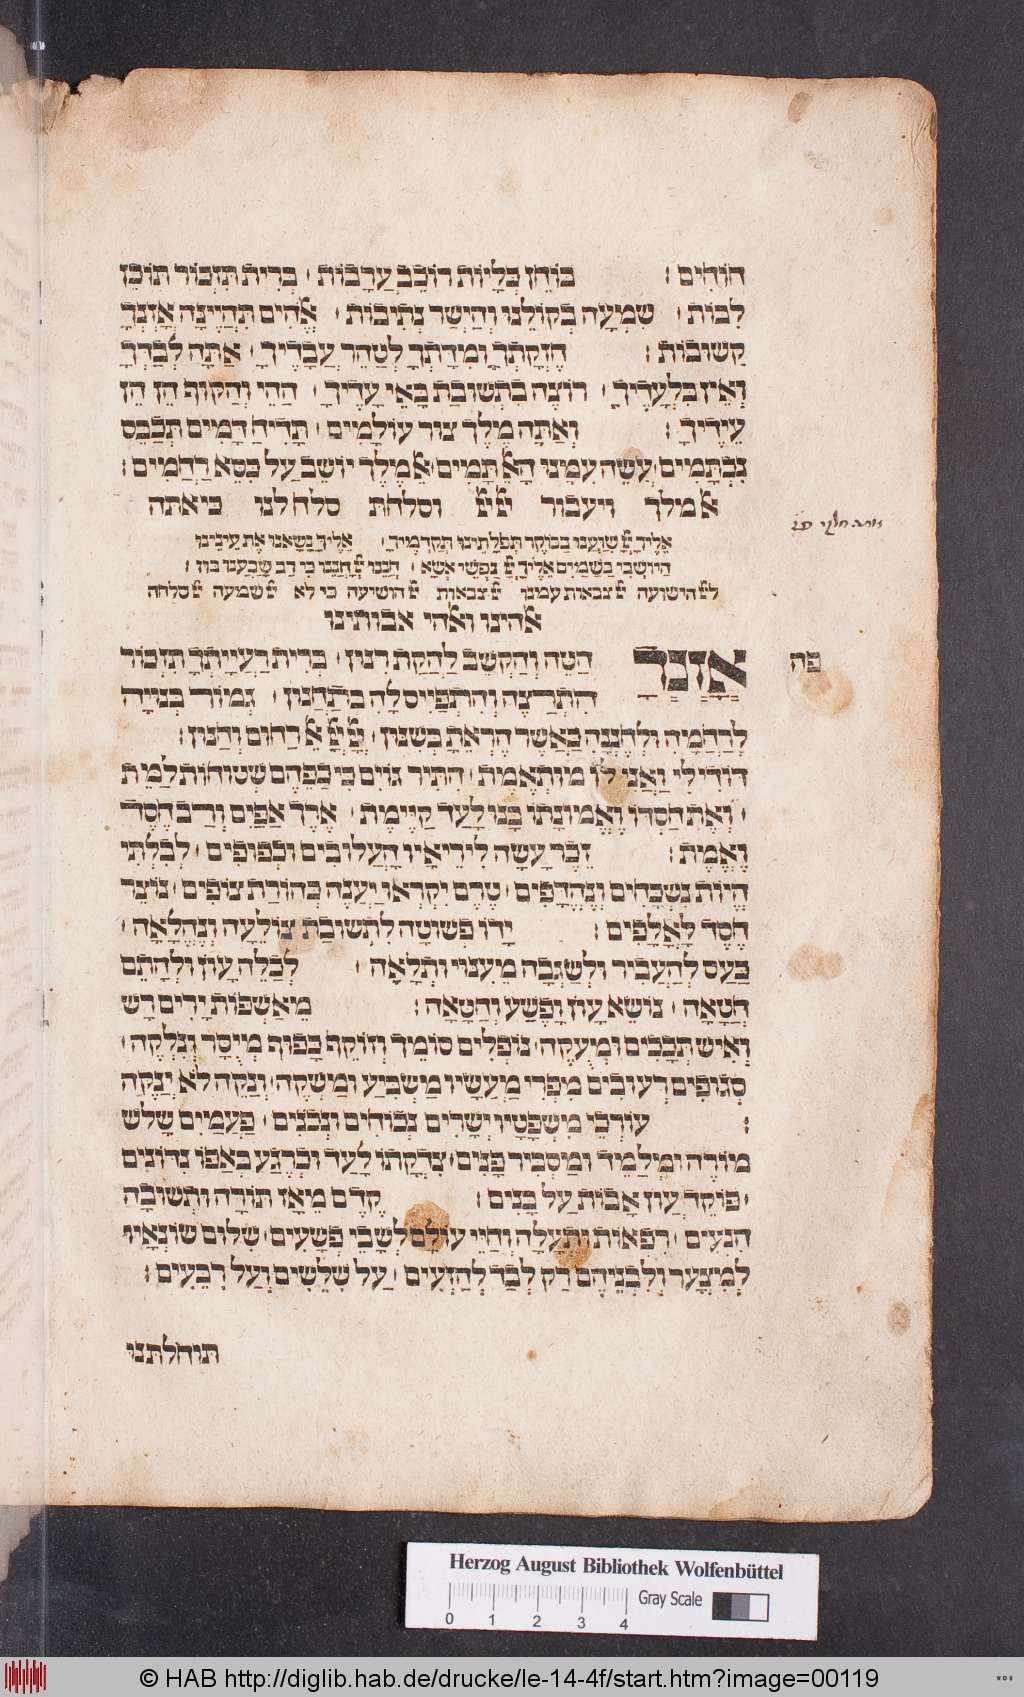 הוֹחִים :  בּוֹחֵן כְּלָיוֹת רוֹכֵב עֲרָבוֹת · בְּרִית תִּזְכּוֹר תּוֹכֵן
לִבּוֹת · שִׁמְעָה בְקוֹלֵנוּ וְהַיְשַׁר נְתִיבוֹת · אֱלֹהִים תִּהְיֶינָה אָזְנֶךָ
קַשּׁוּבוֹת :  חֶזְקָתְךָ וּמִדָּתְךָ לְטַהֵר עֲבָדֶיךָ · אַתָּה לְבַדְּךָ
וְאֵין בִּלְעָדֶיךָ · רוֹצֶה בִתְשׁוּבַת בָּאֵי עָדֶיךָ · הַהֵי וְהַקּוּף הֵן הֵן
עֵידֶיךָ :  וְאַתָּה מֶלֶךְ צוּר עוֹלָמִים · תָּדִיחַ דָּמִים תְּכַבֵּס
כְּתָמִים · עֲשֵׂה עִמָּנוּ הָאֹ תָמִים · אֵל מֶלֶךְ יוֹשֵׁב עַל כִּסֵּא רַחֲמִים :
אל מלך ויעבור יי יי וסלחת סלח לנו כי אתה
אֵלֶיךָ יי שִׁוַּעְנוּ בַבּוֹקֶר תְּפִלָּתֵינוּ תְקַדְּמֶיךָ · אֵלֶיךָ נָשָׂאנוּ אֶת עֵינֵינוּ
הַיּוֹשְׁבִי בַּשָּׁמַיִם אֵלֶיךָ יי נַפְשִׁי אֶשָּׂא · חָנֵנוּ יי חָנֵנוּ כִּי רַב שָׂבַעְנוּ בוּז :
ליי הישועה יי צבאות עמנו יי צבאות יי הושיעה כי לא יי שמעה יי סלחה
אלהינו ואלהי אבותינו
פה
אָזְנְךָ  הַטֵּה וְהַקְשֵׁב לַהֲקַת רִנּוּן · בְּרִית רַעְיָיתְךָ תִזְכּוֹר
הִתְרַצֶּה וְהִתְפַּיֵיס לָהּ בְּתַחֲנוּן · גְּמוֹר בְּנִיָּיהּ
לְרַחֲמָהּ וּלְחָנְנָהּ כַּאֲשֶׁר הֶרְאֵתָ בְּשִׁנּוּן · יי יי אֵל רַחוּם וְחַנּוּן :
דּוֹדִי לִי וַאֲנִי לוֹ מִזְתָּאֶמֶת · הִתִּיר גּוֹיִם כִּי כַפֵּיהֶם שְׁטוּחוֹת לַמֵּת
· וְאֶת חַסְדּוֹ וֶאֱמוּנָתוֹ בָּנוּ לָעַד קַיֶּימֶת · אֶרֶךְ אַפַּיִם וְרַב חֶסֶד
וֶאֱמֶת :  זֵכֶר עָשָׂה לִירֵיאָיו הָעֲלוּבִים וּכְפוּפִים · לְבִלְתִּי
הֱיוֹת נִשְׁכָּחִים וְנֶהְדָּפִים · טֶרֶם יִקְרְאוּ יַעֲנֶה בְּהוֹרַת צוֹפִים · נוֹצֵר
חֶסֶד לָאֲלָפִים :  יָדוֹ פְשׁוּטָה לִתְשׁוּבַת צוֹלֵעָה וְנֶהֱלָאָה ·
כַּעַס לְהַעֲבִיר וּלְשַׂגְּבָהּ מֵעִנּוּי וּתְלָאָה ·  לְכַלֵּה עָוֹן וּלְהָתֵם
חַטָּאָה · נוֹשֵׂא עָוֹן וָפֶשַׁע וְחַטָּאָה :  מֵאַשְׁפּוֹת יָרִים רָשׁ
וְאִישׁ תְּכָכִים וּמְעָקָה · נוֹפְלִים סוֹמֵךְ וְזוֹקֵף כָּפוּף מְיֻסָּר וְנִלְקָה ·
סְגוּפִים רְעֵבִים מִפְּרִי מַעֲשָׂיו מַשְׂבִּיעַ וּמַשְׁקֶה · וְנַקֵּה לֹא יְנַקֶּה
:  עוֹרְכֵי מִשְׁפָּטָיו יְשָׁרִים נְכוֹחִים וּנְכֹנִים · פַּעֲמַיִם שָׁלֹשׁ
מוֹרֶה וּמְלַמֵּד וּמַסְבִּיר פָּנִים · צִדְקָתוֹ לָעַד וּכְרֶגַע בְּאַפּוֹ נִדּוֹנִים
· פּוֹקֵד עֲוֹן אָבוֹת עַל בָּנִים :  קֶדֶם מֵאָז תּוֹרָה וּתְשׁוּבָה
הִנְעִים · רְפָאוֹת וּתְעָלָה וְחַיֵּי עוֹלָם לְשָׁבֵי פְשָׁעִים · שִׁלּוּם שׂוֹנְאָיו
לְמִצְעָר וְלִבְנֵיהֶם רַק לְבַד לְהַזְעִים · עַל שִׁלֵּשִׁים וְעַל רִבֵּעִים :
תוחלתנו
Herzog August Bibliothek Wolfenbüttel
0 1 2 3 4 Gray Scale
© HAB http://diglib.hab.de/drucke/le-14-4f/start.htm?image=00119